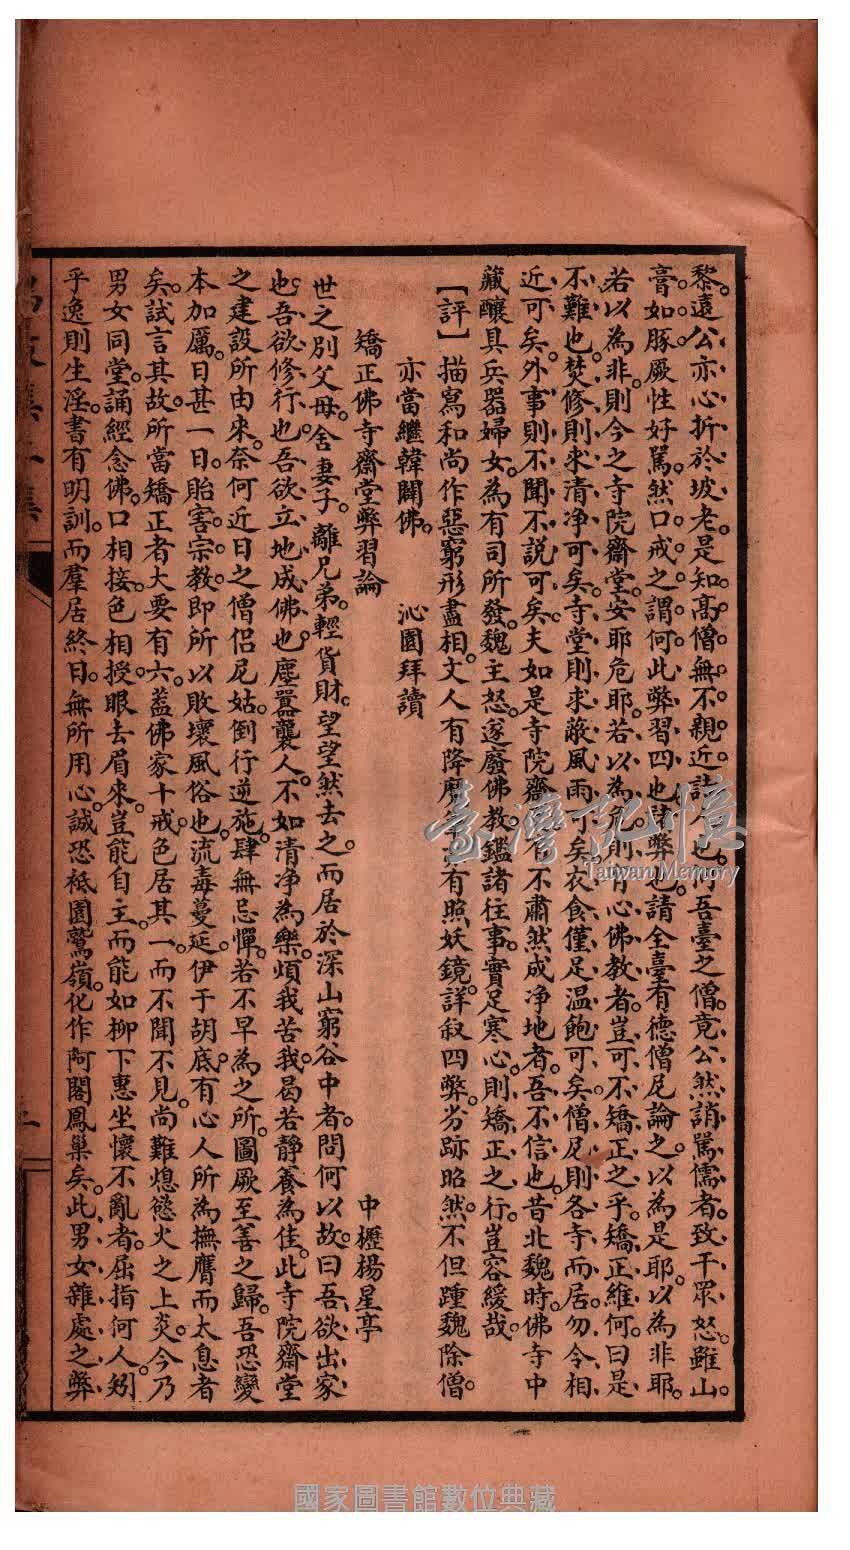 黎。遠公亦心折於坡老。是知高僧。無不親近詰人也。何吾臺之僧。竟公然誚罵儒者。致干眾怒。雖山
膏如豚。厥性好罵。然口戒之謂何。此弊習四也。諸弊也。請全臺有德僧尼論之。以為是耶。以為非耶。
若以為非。則今之寺院齋堂。安耶危耶。若以為危。則有心佛教者。豈可不矯正之乎。矯正維何。曰是
不難也。焚修則求清净可矣。寺堂則求蔽風雨可矣。衣食僅足溫飽可矣。僧尼則各寺而居。勿令相
近可矣。外事則不聞不說可矣。夫如是寺院齋堂。有不肅然成净地者。吾不信也。昔北魏時。佛寺中
藏釀具兵器婦女。為有司所發。魏主怒。遂廢佛教。鑑諸往事。實足寒心。則矯正之行。豈容緩哉。
【評】描寫和尚作惡。窮形盡相。文人有降魔 有照妖鏡。詳叙四弊。劣跡昭然。不但踵魏除僧。
亦當繼韓闢佛。 沁園拜讀
矯正佛寺齋堂弊習論 中壢楊星亭
世之別父母。舍妻子。離兄弟。輕貨財。望望然去之。而居於深山窮谷中者。問何以故。曰吾欲出家
也。吾欲修行也。吾欲立地成佛也。塵囂襲人。不如清净為樂。煩我苦我。曷若靜養為佳。此寺院齋堂
之建設所由來。奈何近日之僧侶尼姑。倒行逆施。肆無忌憚。若不早為之所。圖厥至善之歸。吾恐變
本加厲。日甚一日。貽害宗教。即所以敗壞風俗也。流毒蔓延。伊于胡底。有心人所為撫膺而太息者
矣。試言其故。所當矯正者大要有六。蓋佛家十戒。色居其一。而不聞不見。尚難熄慾火之上炎。今乃
男女同堂。誦經念佛。口相接。色相授。眼去眉來。豈能自主。而能如柳下惠坐懷不亂者。屈指何人。矧
乎逸則生淫。書有明訓。而羣居終日。無所用心。誠恐祗園鷲嶺。化作阿閣鳳巢矣。此男女雜處之弊
臺灣記憶
Taiwan Memory
國家圖書館數位典藏